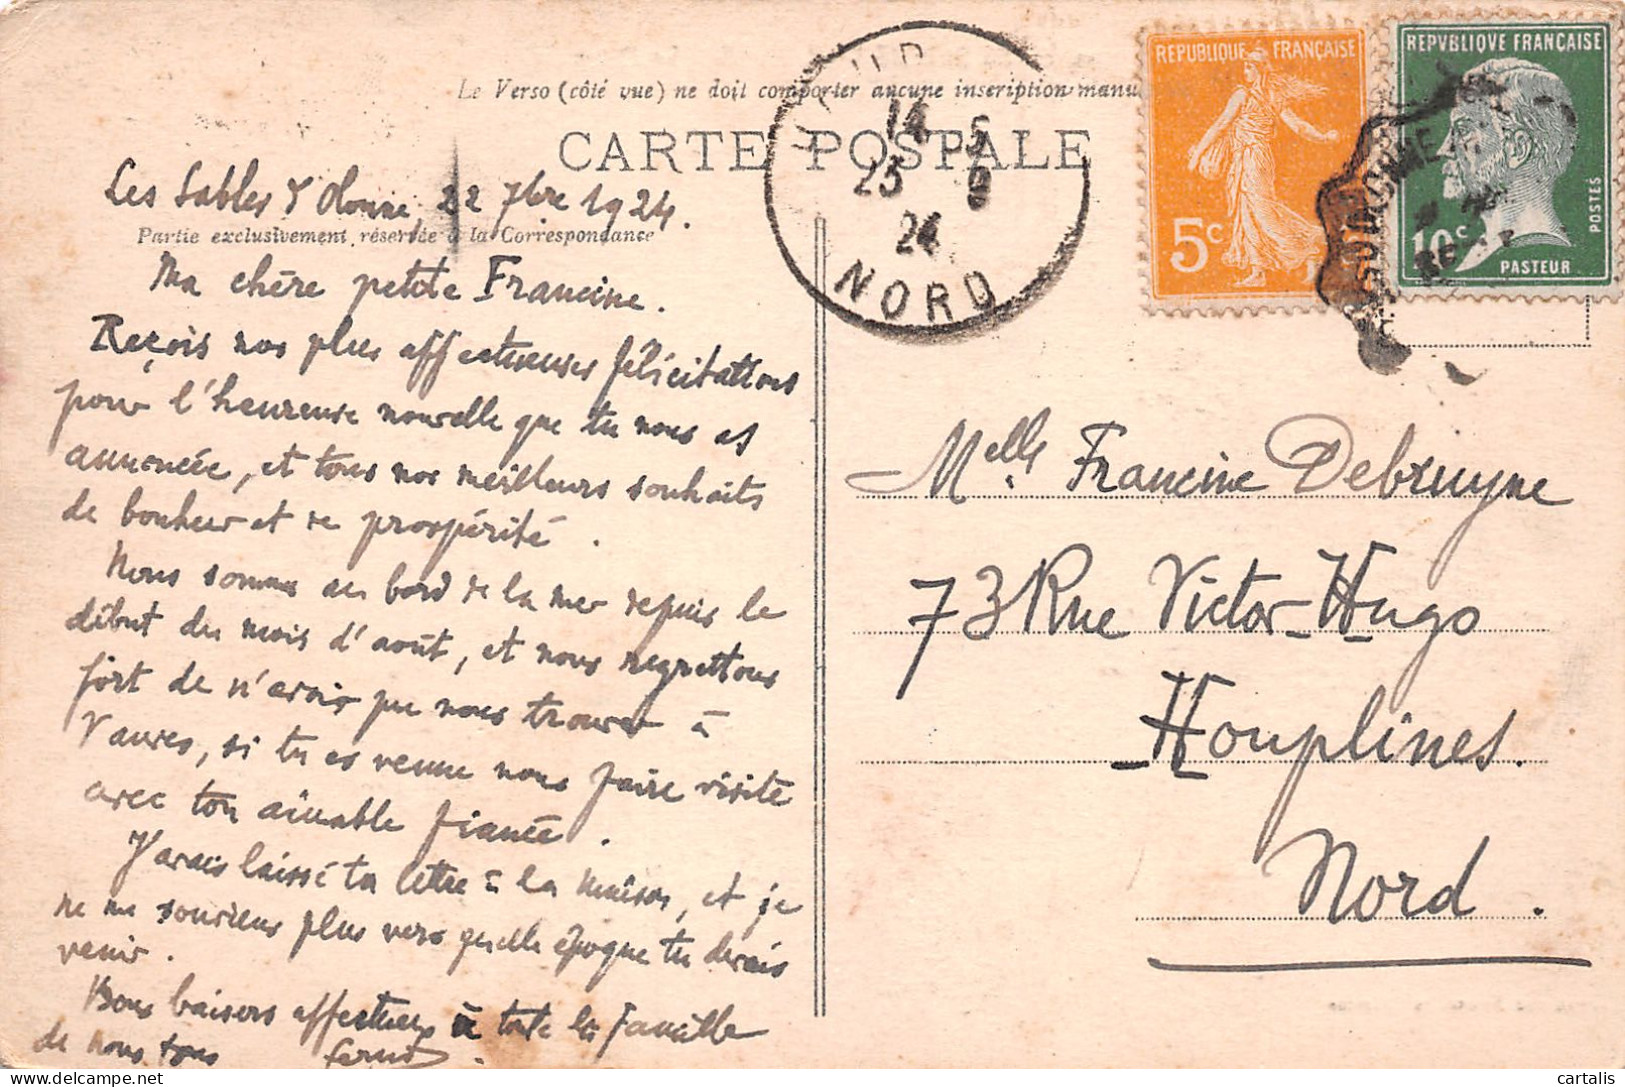 Le Verso (côté vue) ne doit comporter aucune inscription manu
CARTE POSTALE
Les Sables d'Olonne, 22 7bre 1924.
Partie exclusivement réservée à la Correspondance
Ma chère petite Francine.
Reçois nos plus affectueuses félicitations
pour l'heureuse nouvelle que tu nous as
annoncée, et tous nos meilleurs souhaits
de bonheur et de prospérité.
Nous sommes au bord de la mer depuis le
début du mois d'août, et nous regrettons
fort de n'avoir pu nous trouver à
Vauves, si tu es venue nous faire visite
avec ton aimable fiancé.
J'avais laissé ta lettre à la maison, et je
ne me souviens plus vers quelle époque tu devais
venir.
Bons baisers affectueux à toute la famille
de nous tous
REPUBLIQUE FRANÇAISE
5c
REPVBLIQVE FRANÇAISE
10c
POSTES
PASTEUR
14 5
23 9
24
NORD
Melle Francine Debruyne
73 Rue Victor-Hugo
Houplines.
Nord.
cartalis